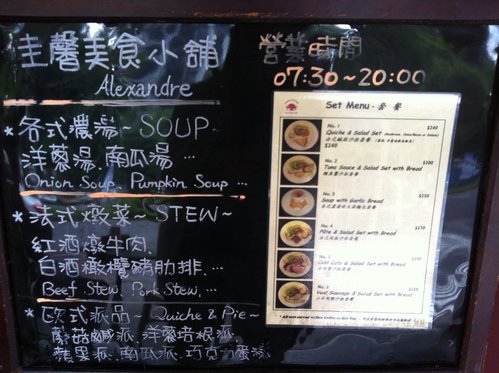 圭馨美食小舖
Alexandre
營業時間
07:30~20:00
*各式濃湯~SOUP
洋蔥湯.南瓜湯…
Onion Soup. Pumpkin Soup…
*法式燉菜~STEW~
紅酒燉牛肉.
白酒橄欖豬肋排.…
Beef Stew. Pork Stew.…
*歐式派品~Quiche & Pie~
蘑菇鹹派.洋蔥培根派.
蘋果派.南瓜派.巧克力蛋糕
Set Menu - 套餐
No. 1 $240
Quiche & Salad Set
$240
No. 2 $200
Tuna Sauce & Salad Set with Bread
No. 3 $250
Soup with Garlic Bread
No. 4
Pâte & Salad Set with Bread
No. 5
Cold Cuts & Salad Set with Bread
No. 6
Veal Sausage & Salad Set with Bread